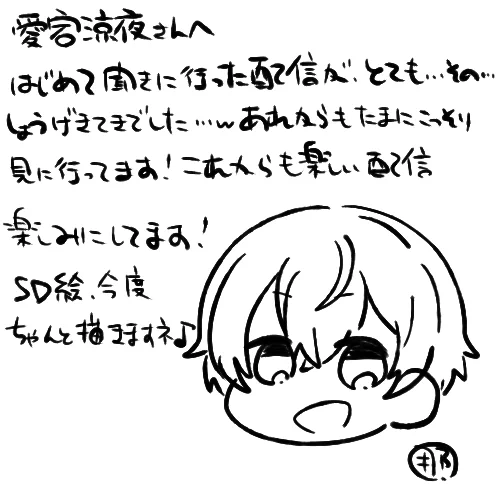 愛宮涼夜さんへ
はじめて聞きに行った配信が、とても…その…
しょうげきてきでした…wあれからもたまにこっそり
見に行ってます！これからも楽しい配信
楽しみにしてます！
SD絵、今度
ちゃんと描きますネ♪